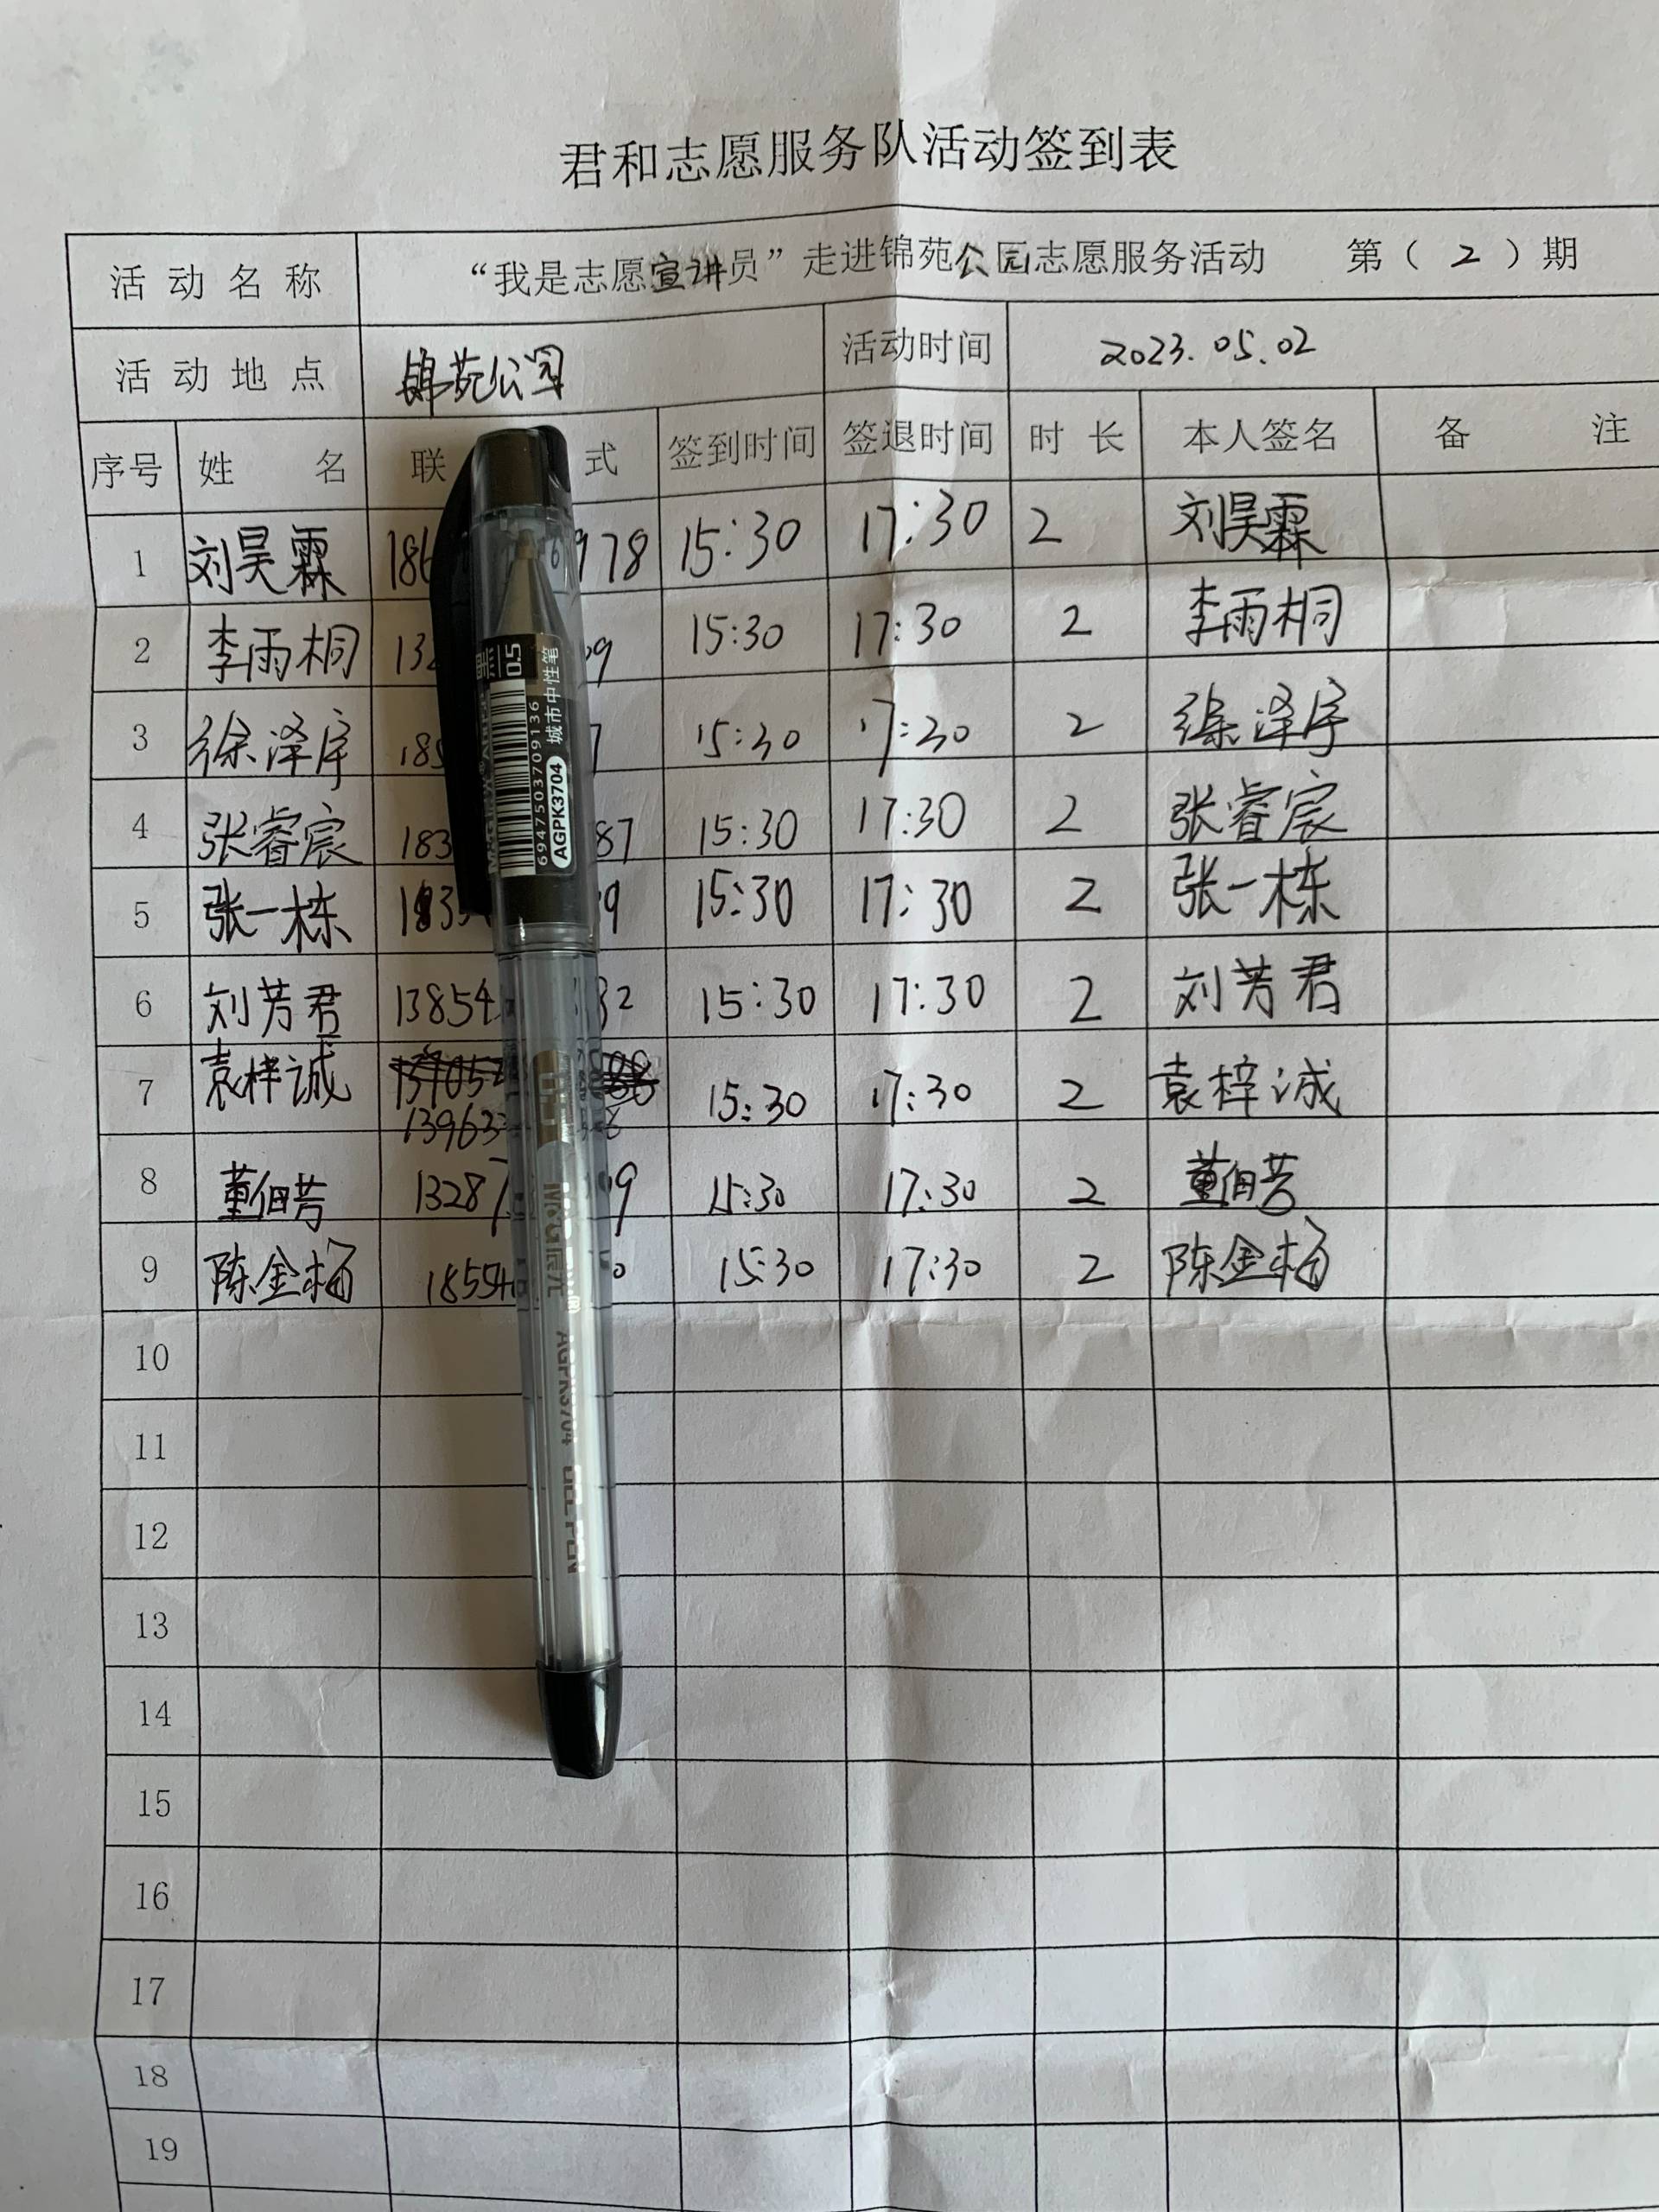 君和志愿服务队活动签到表
活动名称 “我是志愿宣讲员”走进锦苑公园志愿服务活动 第（2）期
活动地点 锦苑公园 活动时间 2023.05.02
序号 姓名 联 式 签到时间 签退时间 时长 本人签名 备注
1 刘昊霖 186 978 15:30 17:30 2 刘昊霖
2 李雨桐 132 9 15:30 17:30 2 李雨桐
3 徐泽宇 185 7 15:30 17:30 2 徐泽宇
4 张睿宸 183 87 15:30 17:30 2 张睿宸
5 张一栋 1833 9 15:30 17:30 2 张一栋
6 刘芳君 13854 32 15:30 17:30 2 刘芳君
7 袁梓诚 13963 8 15:30 17:30 2 袁梓诚
8 董佃芳 13287 9 15:30 17:30 2 董佃芳
9 陈金杨 18554 0 15:30 17:30 2 陈金杨
10
11
12
13
14
15
16
17
18
19
黑 0.5
城市中性笔
6947503709136
AGPK3704
M&G晨光
AGPK3704 GEL PEN